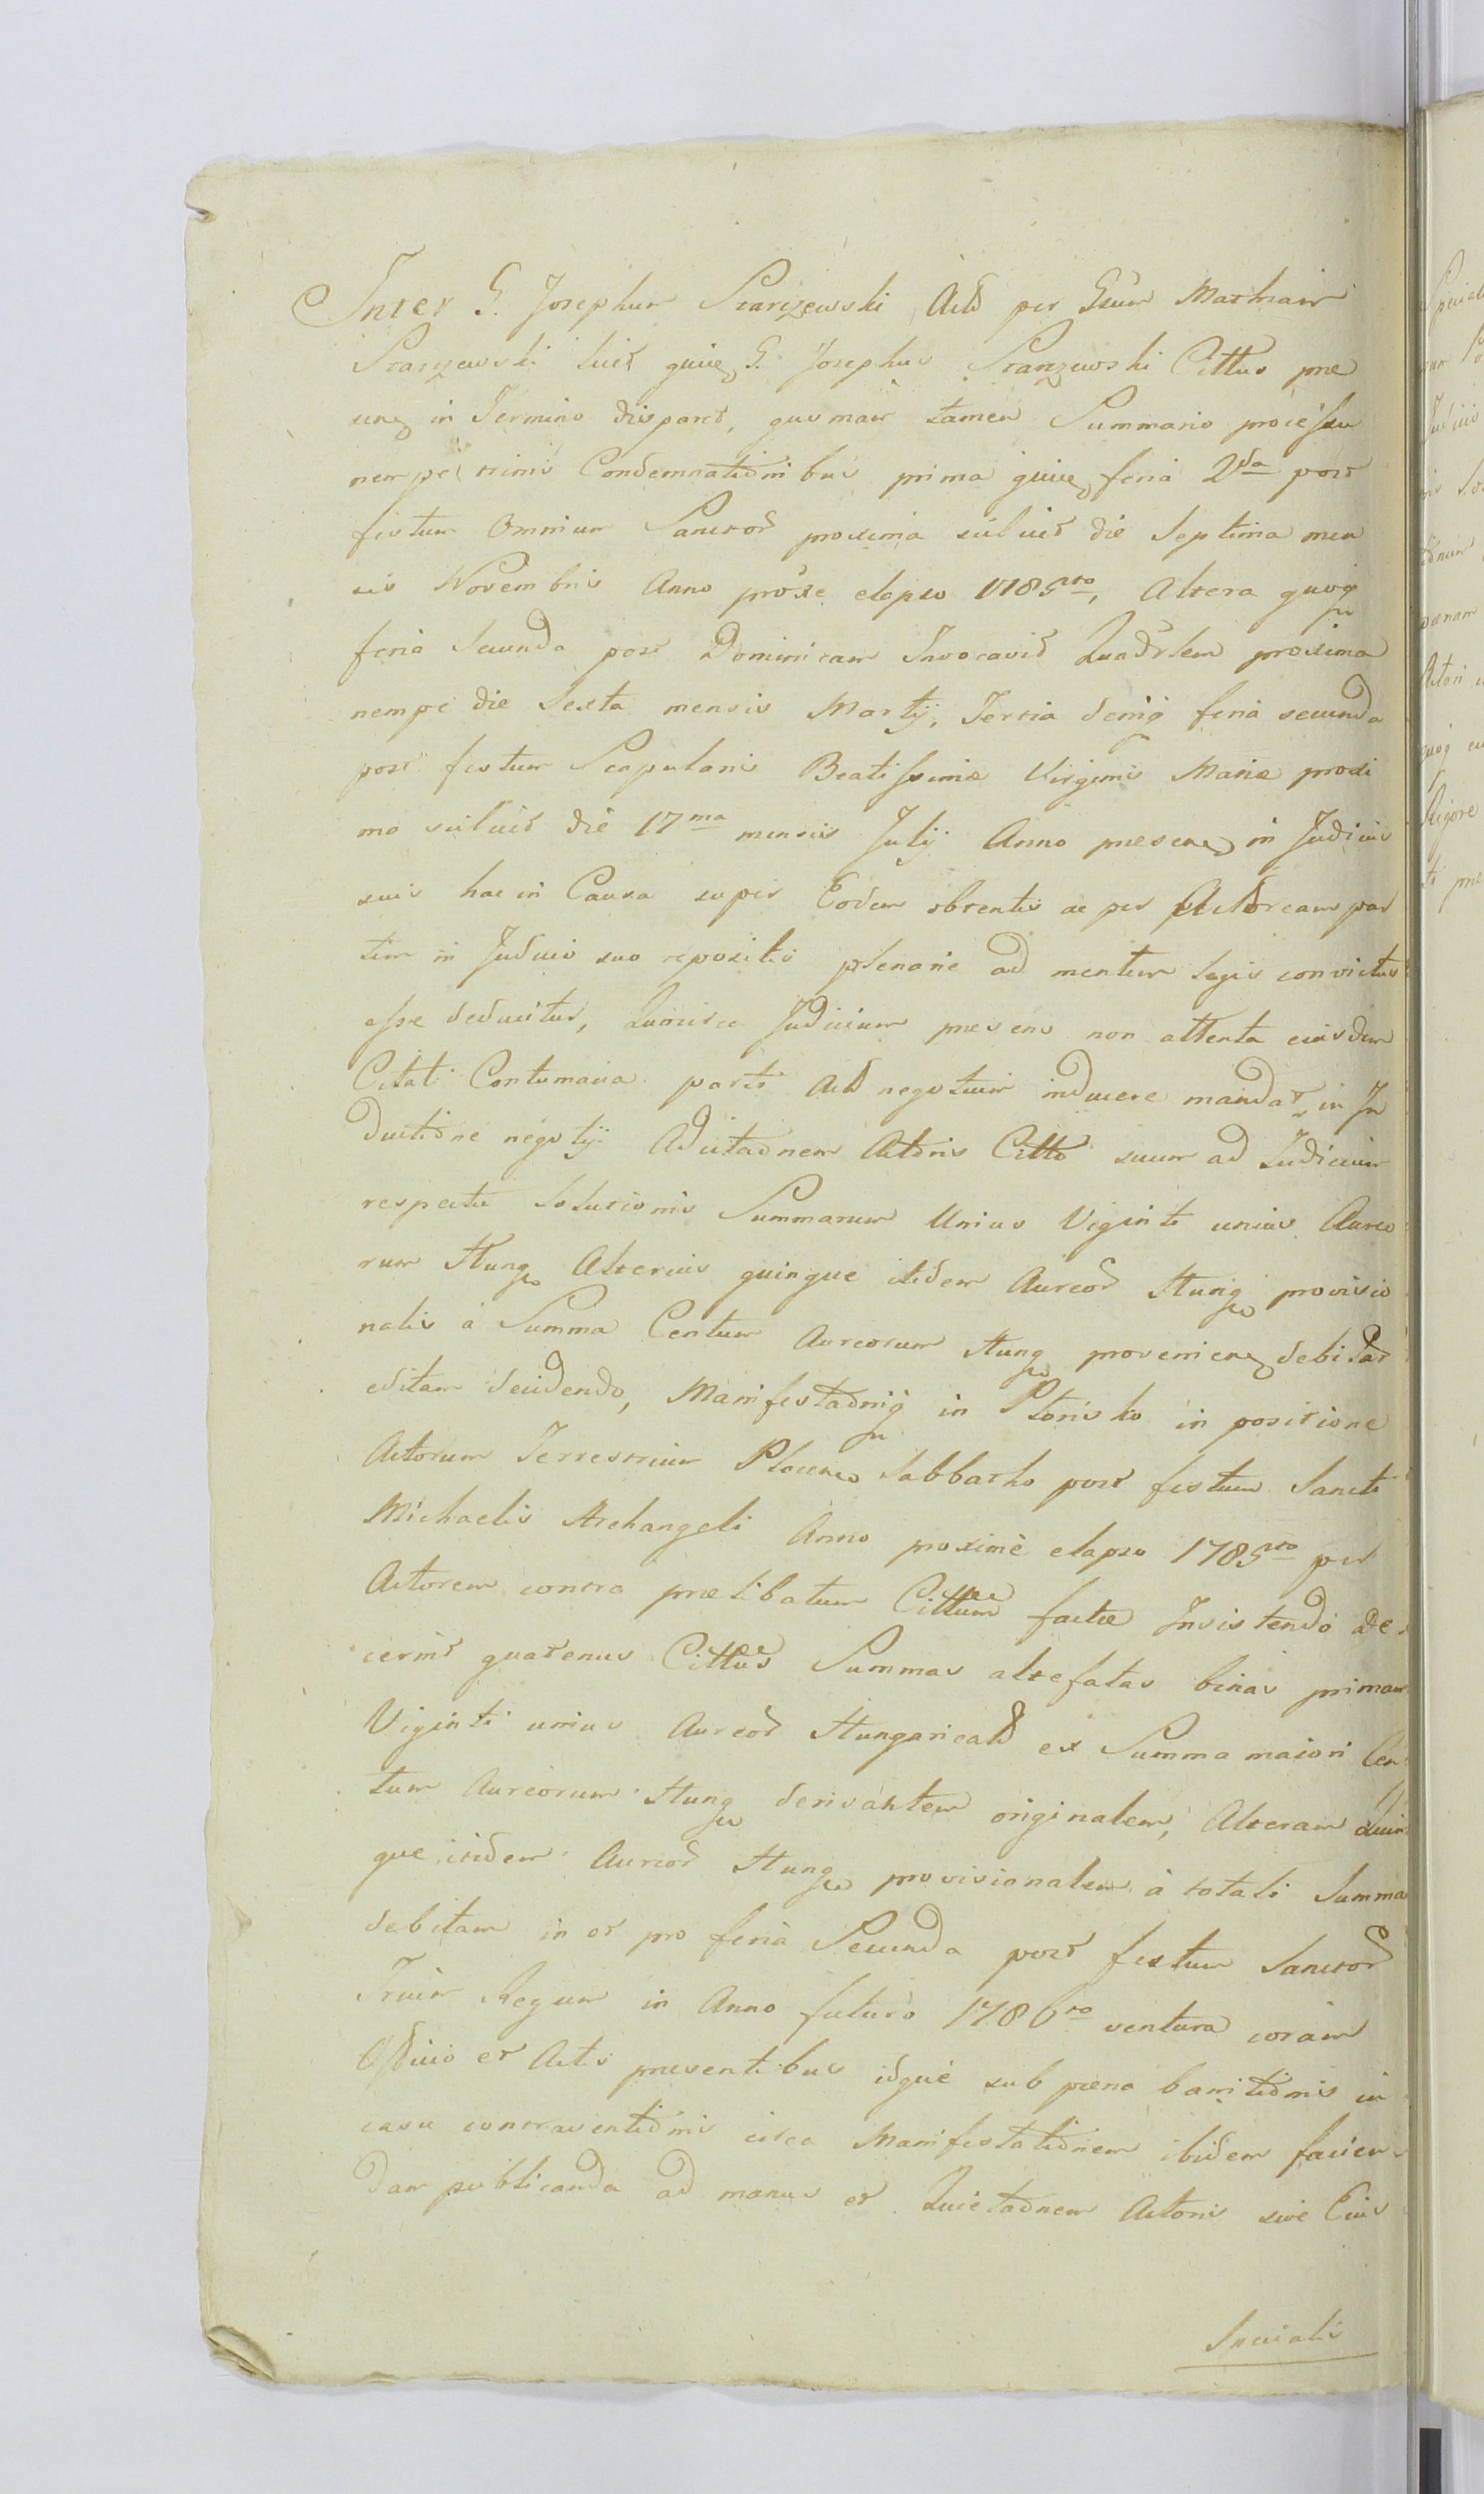 Inter G. Josephum Starzewski Actõ per Gsum Mathiam
Starzewski licet quiuę G. Josephus Starzewski Cittus præ
sens in Termino disparet, quomam tamen Summario processu
nempe trinis Condemnatiõnibus prima quiuę feria 2da post
festum Omnium Sanctor proxima scilicet die Septima men
sis Novembris Anno proxe elapso 1785to, Altera quoq
feria Secunda post Dominicam Invocavit Quadrlem proxima
nempe die Sexta mensis Martij, Tertia deniq feria secunda
post festum Scapularis Beatissimæ Virginis Mariæ proxi
mo scilicet die 17ma mensis Julij Anno præsenę in Judicijs
suis hac in Causa super Eodem obtentis ac per Actoream par
tem in Judicio suo repositis plenarie ad mentem legis convictus
esse deducitur, Quocirca Judicium præsens non attenta eiusdem
Citati Contumacia parti Actõ negotium inducere mandat, in In
ductiõne negotij Adcitaõnem Actõris Cittõ suum ad Judicium
respectu Solutionis Summarum Unius Viginti unius Aureo
rum Hung Alterius quinque itidem Aureor Hung provisio
nalis à Summa Centum Aureorum Hung provenienę debitar
editam decidendo, Manifestaõniq in Płońsko in positione
Actorum Terrestrium Plocens Sabbatho post festum Sancti
Michaelis Archangeli Anno proximè elapso 1785to per
Actorem contra prælibatum Cittum factæ Insistendo de
cernit quatenus Cittus Summas altefatas binas primam
Viginti unius Aureor Hungaricalõ ex Summa maiori Cen
tum Aureorum Hung derivantem originalem, Alteram Quin
que itidem Aureor Hung provisionalem à totali Summa
debitam in et pro feria Secunda post festum Sanctor
Trium Regum in Anno futuro 1786to ventura coram
Officio et Actis præsentibus idque sub pæna banitiõnis in
casu contraventiõnis circa Manifestatiõnem ibidem facien
dam publicanda ad manus et Quietaõnem Actoris sive Eius
Speciali